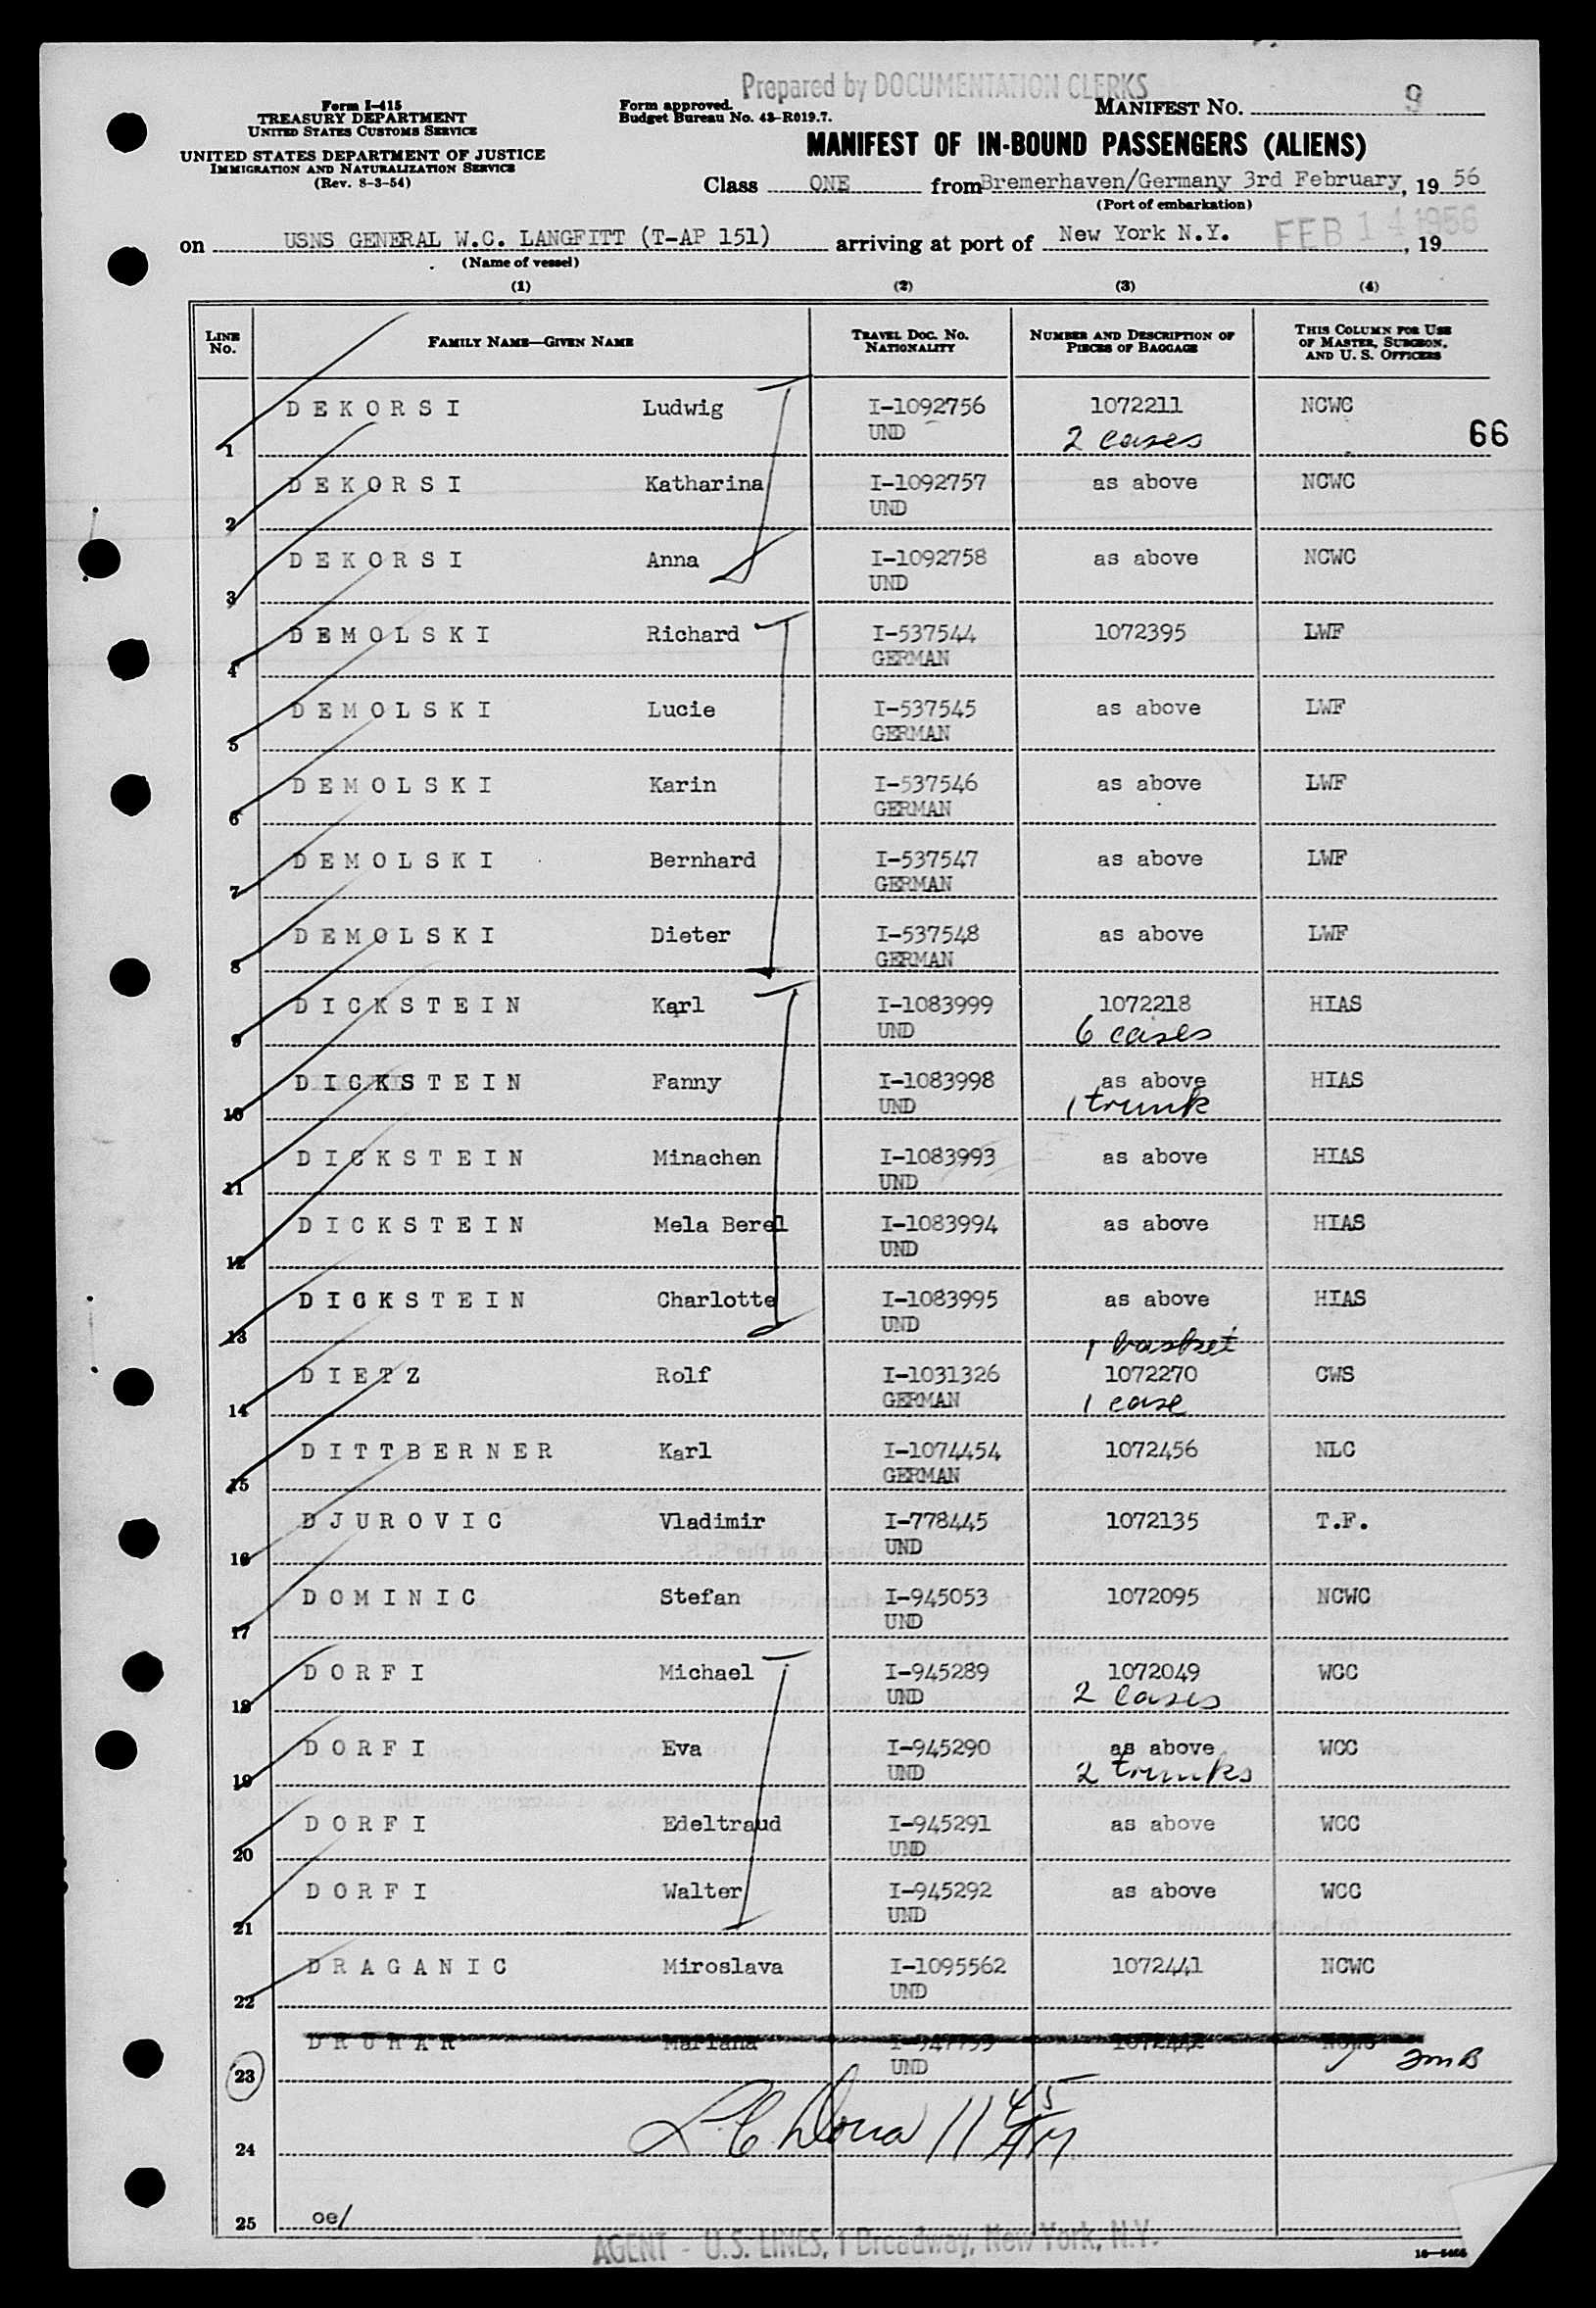 Prepared by DOCUMENTATION CLERKS
Form I-415
TREASURY DEPARTMENT
UNITED STATES CUSTOMS SERVICE
UNITED STATES DEPARTMENT OF JUSTICE
IMMIGRATION AND NATURALIZATION SERVICE
(Rev. 8-3-54)
Form approved.
Budget Bureau No. 43-R019.7.
MANIFEST NO. 9
MANIFEST OF IN-BOUND PASSENGERS (ALIENS)
Class ONE from Bremerhaven/Germany 3rd February, 19 56
(Port of embarkation)
on USNS GENERAL W.C. LANGFITT (T-AP 151) arriving at port of New York N.Y. FEB 14 1956, 19
(Name of vessel)
(1) (2) (3) (4)
LINE NO. FAMILY NAME—GIVEN NAME TRAVEL DOC. NO. NATIONALITY NUMBER AND DESCRIPTION OF PIECES OF BAGGAGE THIS COLUMN FOR USE OF MASTER, SURGEON, AND U. S. OFFICERS
D E K O R S I Ludwig I-1092756 1072211 NCWC
1 UND 2 cases 66
D E K O R S I Katharina I-1092757 as above NCWC
2 UND
D E K O R S I Anna I-1092758 as above NCWC
3 UND
D E M O L S K I Richard I-537544 1072395 LWF
4 GERMAN
D E M O L S K I Lucie I-537545 as above LWF
5 GERMAN
D E M O L S K I Karin I-537546 as above LWF
6 GERMAN
D E M O L S K I Bernhard I-537547 as above LWF
7 GERMAN
D E M O L S K I Dieter I-537548 as above LWF
8 GERMAN
D I C K S T E I N Karl I-1083999 1072218 HIAS
9 UND 6 cases
D I C K S T E I N Fanny I-1083998 as above HIAS
10 UND 1 trunk
D I C K S T E I N Minachen I-1083993 as above HIAS
11 UND
D I C K S T E I N Mela Berel I-1083994 as above HIAS
12 UND
D I C K S T E I N Charlotte I-1083995 as above HIAS
13 UND
1 basket
D I E T Z Rolf I-1031326 1072270 CWS
14 GERMAN 1 case
D I T T B E R N E R Karl I-1074454 1072456 NLC
15 GERMAN
D J U R O V I C Vladimir I-778445 1072135 T.F.
16 UND
D O M I N I C Stefan I-945053 1072095 NCWC
17 UND
D O R F I Michael I-945289 1072049 WCC
18 UND 2 cases
D O R F I Eva I-945290 as above WCC
19 UND 2 trunks
D O R F I Edeltraud I-945291 as above WCC
20 UND
D O R F I Walter I-945292 as above WCC
21 UND
D R A G A N I C Miroslava I-1095562 1072441 NCWC
22 UND
Mariana
23 UND
24
11 45 AM
25 oe/
AGENT - U.S. LINES, 1 Broadway, New York, N.Y.